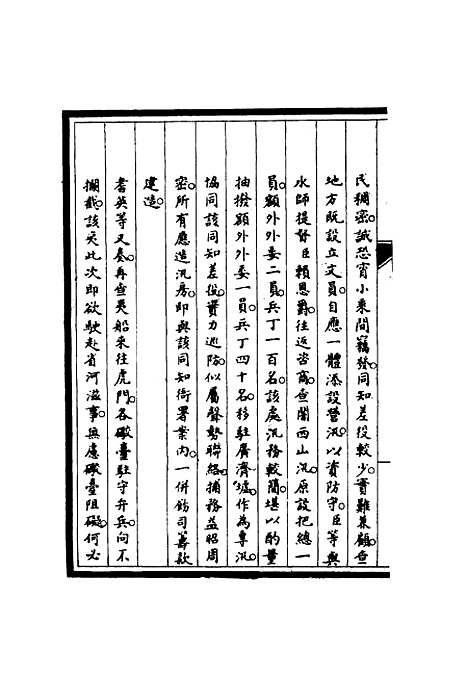 民稠密。誠恐宵小乘間竊發。同知差役較少。實難兼顧。查
地方既設立文員。自應一體添設營汛。以資防守。臣等與
水師提督臣賴恩爵。往返咨商。查閣西山汛。原設把總一
員。額外外委二員。兵丁一百名。該處汛務較簡。堪以酌量
抽撥額外外委一員。兵丁四十名。移駐廣濟墟。作為專汛。
協同該同知差役。實力巡防。似屬聲勢聯絡。捕務益昭周
密。所有應造汛房。即與該同知衙署案內。一併飭司籌款
建造。
耆英等又奏。再查夷船來往虎門。各礮臺駐守弁兵。向不
攔截。該夷此次即欲駛赴省河滋事。無慮礮臺阻礙。何必